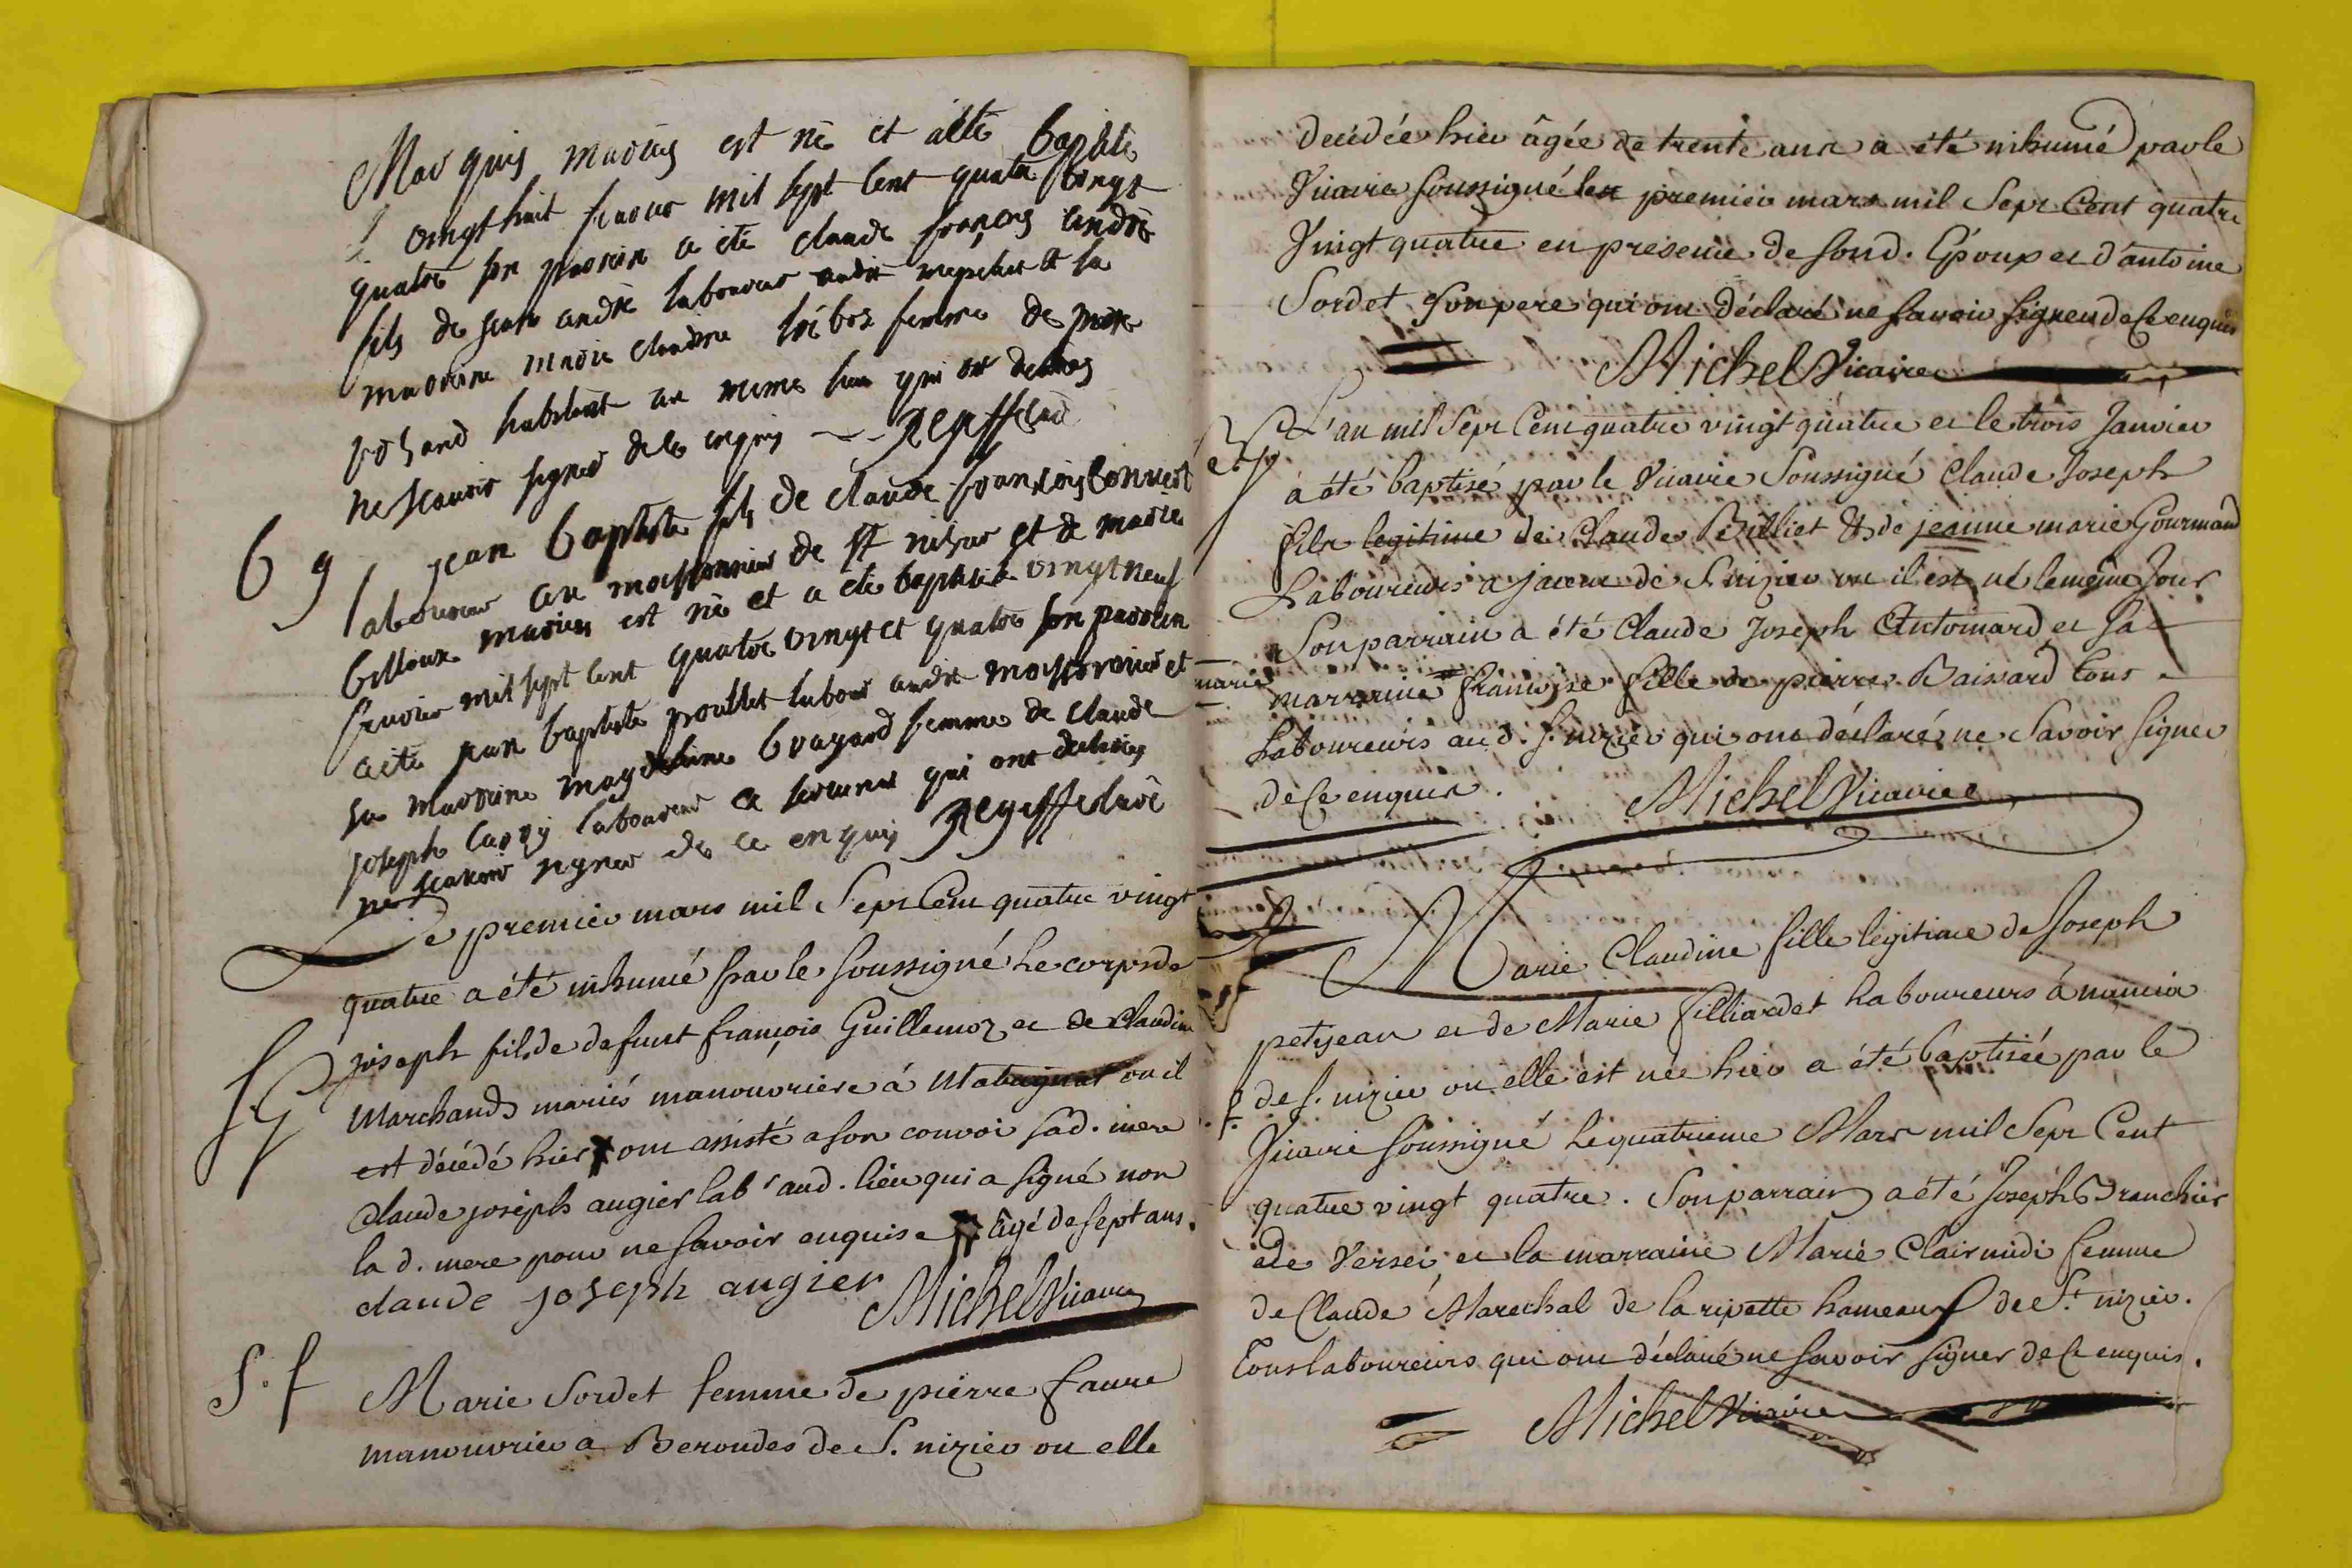 Marquis mariés est né et a été baptisé
l vingt huit fevrier mil sept cent quatre vingt
quatre son parrin a été claude françois andré
fils de jean andré laboureur audit et sa
marrine marie claudine trèboz femme de
habitant au meme lieu qui ont declarés
ne scavoir signer de ce enquis
b g jean baptiste fils de claude françois convert
laboureur au moissonnier de st nisier et de marie
billoux mariés est né et a été baptisé le vingt neuf
fevrier mil sept cent quatre vingt et quatre son parrin
a été jean baptiste poullet labour audit moissonnier et
sa marrine magdelaine bragard femme de claude
joseph carry laboureur a qui ont declarés
ne scavoir signer de ce enquis
Le premier mars mil Sept Cent quatre vingt
quatre a été inhumé par le soussigné le corps de
S. G Joseph fils de defunt françois Guillemoz et de Claudine
Marchands mariés manouvriere à Mabugnat ou il
est décédé hier ont assisté a son convoi sad. mere
Claude joseph augier labr aud. lieu qui a signé non
la d. mere pour ne savoir enquise âgé de sept ans.
claude joseph augier Michel Vicaire
S. f Marie Sordet femme de pierre faure
manouvrier a Beroudes de S. nizier ou elle
decédée hier âgée de trente ans a été inhumé par le
Vicaire soussigné le premier mars mil Sept Cent quatre
Vingt quatre en presence de sond. Epoux et d'antoine
Sordet son pere qui ont déclaré ne savoir signer de ce enquis
Michel Vicaire
L'an mil Sept Cent quatre vingt quatre et le trois Janvier
a été baptisé par le Vicaire Soussigné Claude Joseph
fils legitime de Claude Bulliet & de jeanne marie Gourmand
Laboureurs a jaceur de S. nizier ou il est né le même Jour
Son parrain a été Claude Joseph Antoinard et sa
marie
marraine françoise fille de pierre Baissard tous
Laboureurs aud. S. nizier qui ont déclaré ne Savoir signer
de ce enquis.
Michel Vicaire
Marie Claudine fille legitime de Joseph
petijean et de Marie filliardet Laboureurs à
de S. nizier ou elle est née hier a été baptisée par le
Vicaire soussigné le quatrieme Mars mil Sept Cent
quatre vingt quatre. Son parrain a été Joseph Branchier
de Versei et la marraine Marie Clairmidi femme
de Claude Marechal de la ripette hameau de St. nizier.
Tous laboureurs qui ont déclaré ne savoir signer de ce enquis.
Michel Vicaire